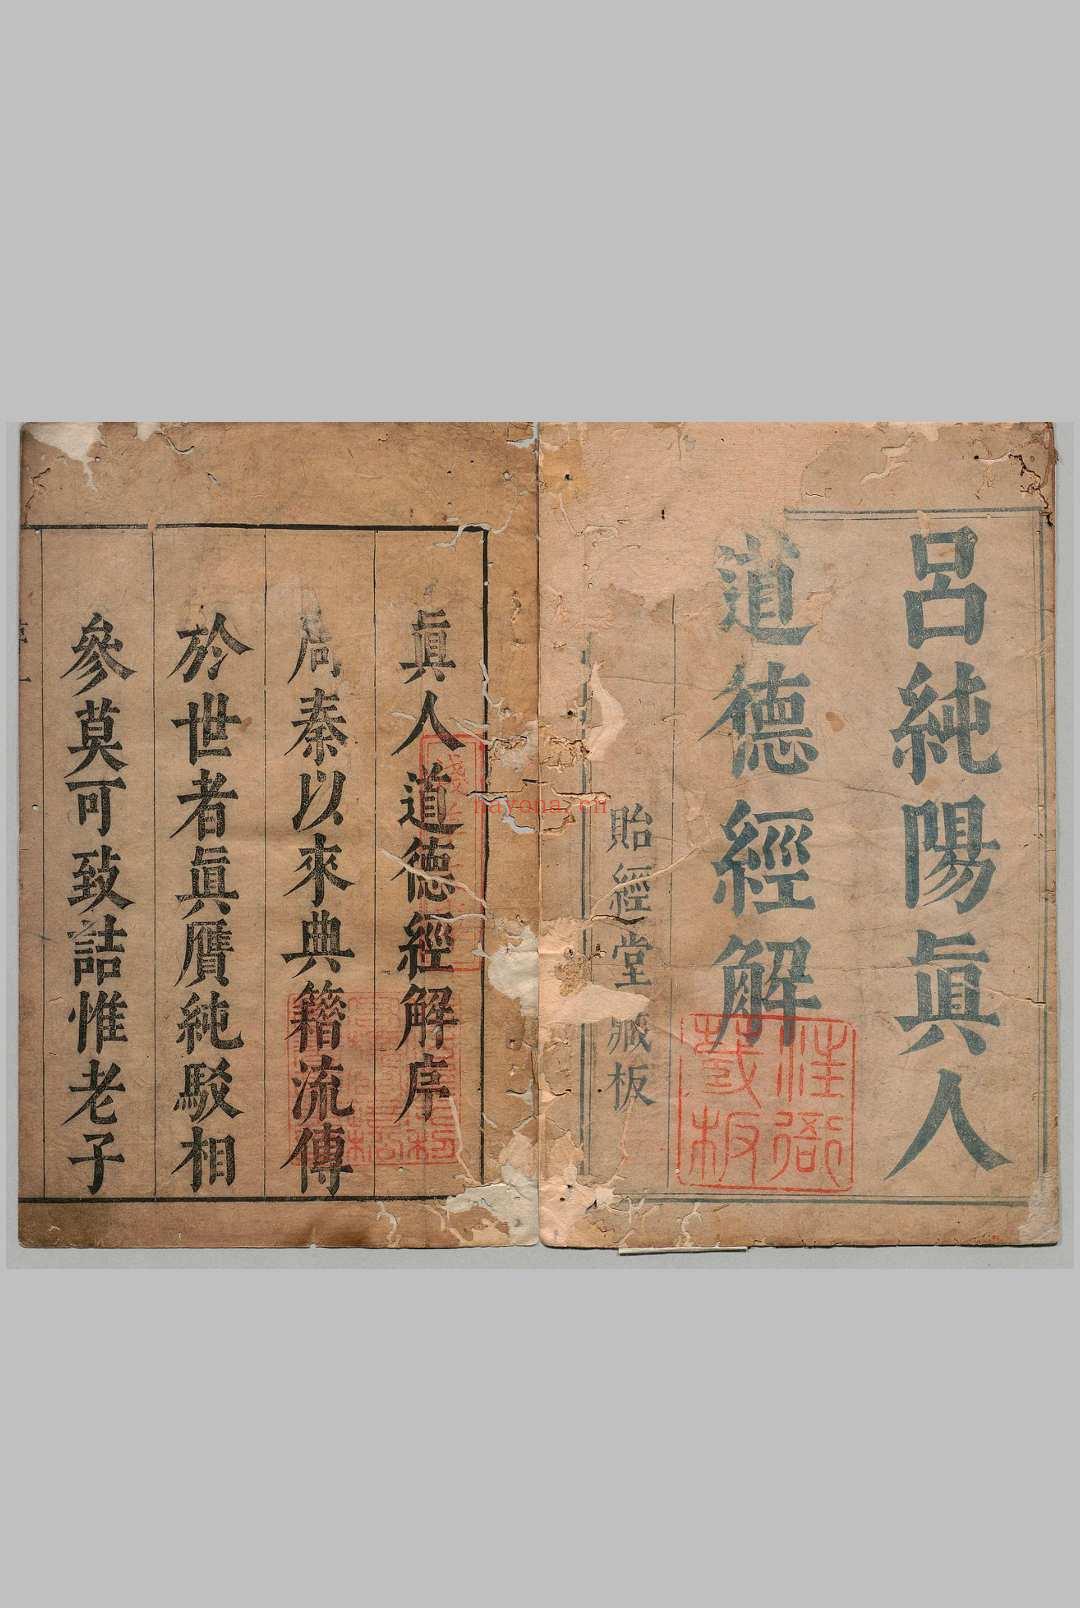 呂純陽眞人
道德經解
貽經堂藏板
眞人道德經解序
周秦以來典籍流傳
於世者眞贋純駁相
參莫可致詰惟老子